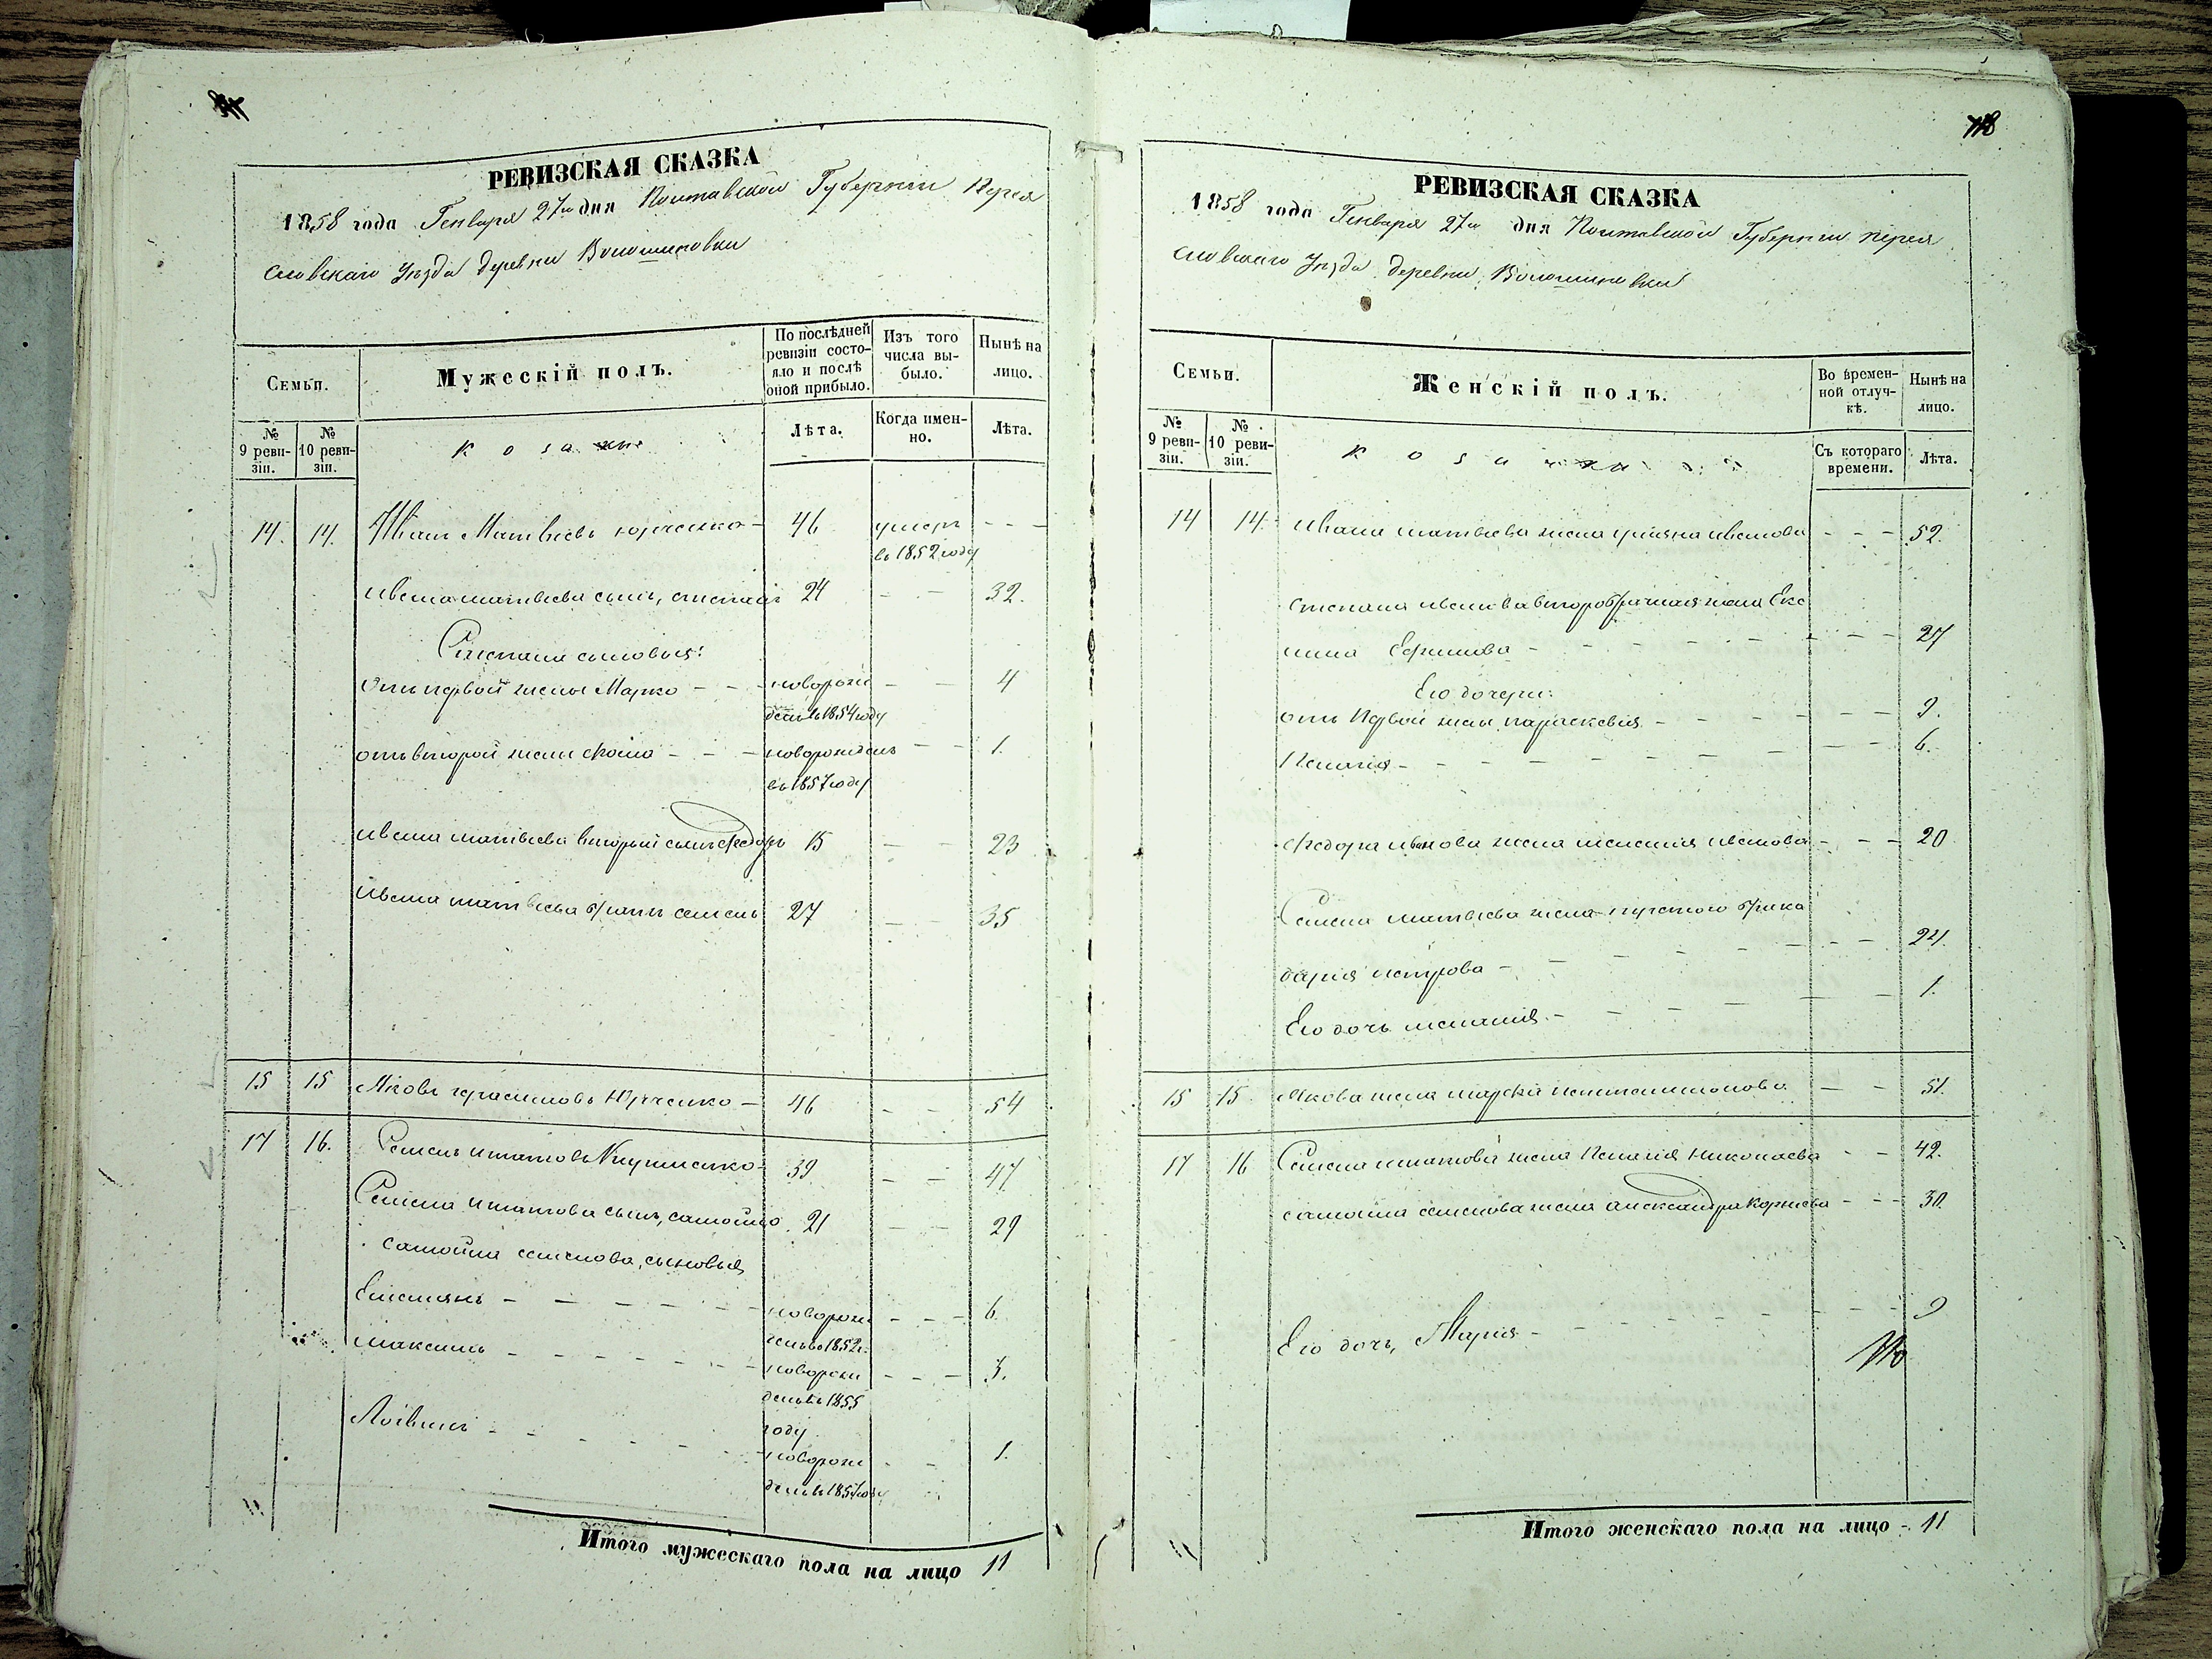 РЕВИЗСКАЯ СКАЗКА
1858 года Генваря 27го дня Полтавской Губернии Перея
славскаго Уезда деревни Волошиновки
Семьи.
Мужескій полъ.
По послѣдней ревизіи состояло и послѣ оной прибыло.
Изъ того числа выбыло.
Нынѣ на лицо.
№ 9 ревизіи.
№ 10 ревизіи.
Козаки
Лѣта.
Когда именно.
Лѣта.
14. 14. Иванъ Матвѣевъ Юрченко - 46 умеръ - - -
въ 1852 году
Ивана Матвѣева сынъ, Степанъ 24 - - 32.
Степана сыновья:
Отъ первой жены Марко - - - новорож - - 4
денъ въ 1854 году
отъ второй жены Фома - - - новорожденъ - - 1.
въ 1857 году
Ивана Матвѣева вторый сынъ Федоръ 15 - - 23
Ивана Матвѣева братъ Семенъ 27 - - 35
15 15 Яковъ Герасимовъ Юрченко - 46 - - 54
17 16. Семенъ Игнатовъ - 39 - - 47
Семена Игнатова сынъ, Самойло 21 - - 29
Самойла Семенова, сыновья
Емельянъ - - - - - - новорож - - - 6.
денъ въ 1852 г.
Максимъ - - - - - - новорож - - - 3.
денъ въ 1855
году
Логвинъ - - - - - - новорож - - 1.
денъ въ 1857 году
Итого мужескаго пола на лицо 11
РЕВИЗСКАЯ СКАЗКА
1858 года Генваря 27го дня Полтавской Губернии Перея
славскаго Уезда деревни Волошиновки
Семьи.
Женскій полъ.
Во временной отлучкѣ.
Нынѣ на лицо.
№ 9 ревизіи.
№ 10 ревизіи.
Козачки
Съ котораго времени.
Лѣта.
14 14. Ивана Матвѣева жена Ульяна Иванова - - - 52.
Степана Иванова второбрачная жена Екс
Ефимова - - - - - - - 27
Его дочери:
отъ Первой жены Параскевия - - - - - - 9.
Пелагія - - - - - - - - - 6.
Федора Иванова жена Меланія Иванова - - - 20
Семена Матвѣева жена первого брака
Дарія Петрова - - - - - - - - 24.
Его дочь Меланія - - - - - - 1.
15 15. Якова жена Марфа Пантелимонова - - 51.
17 16 Семена Игнатова жена Пелагія Николаева - - 42.
Самойла Семенова жена Александра Корнѣева - - - 30.
Его дочь, Марія - - - - - - - 9
Итого женскаго пола на лицо - 11